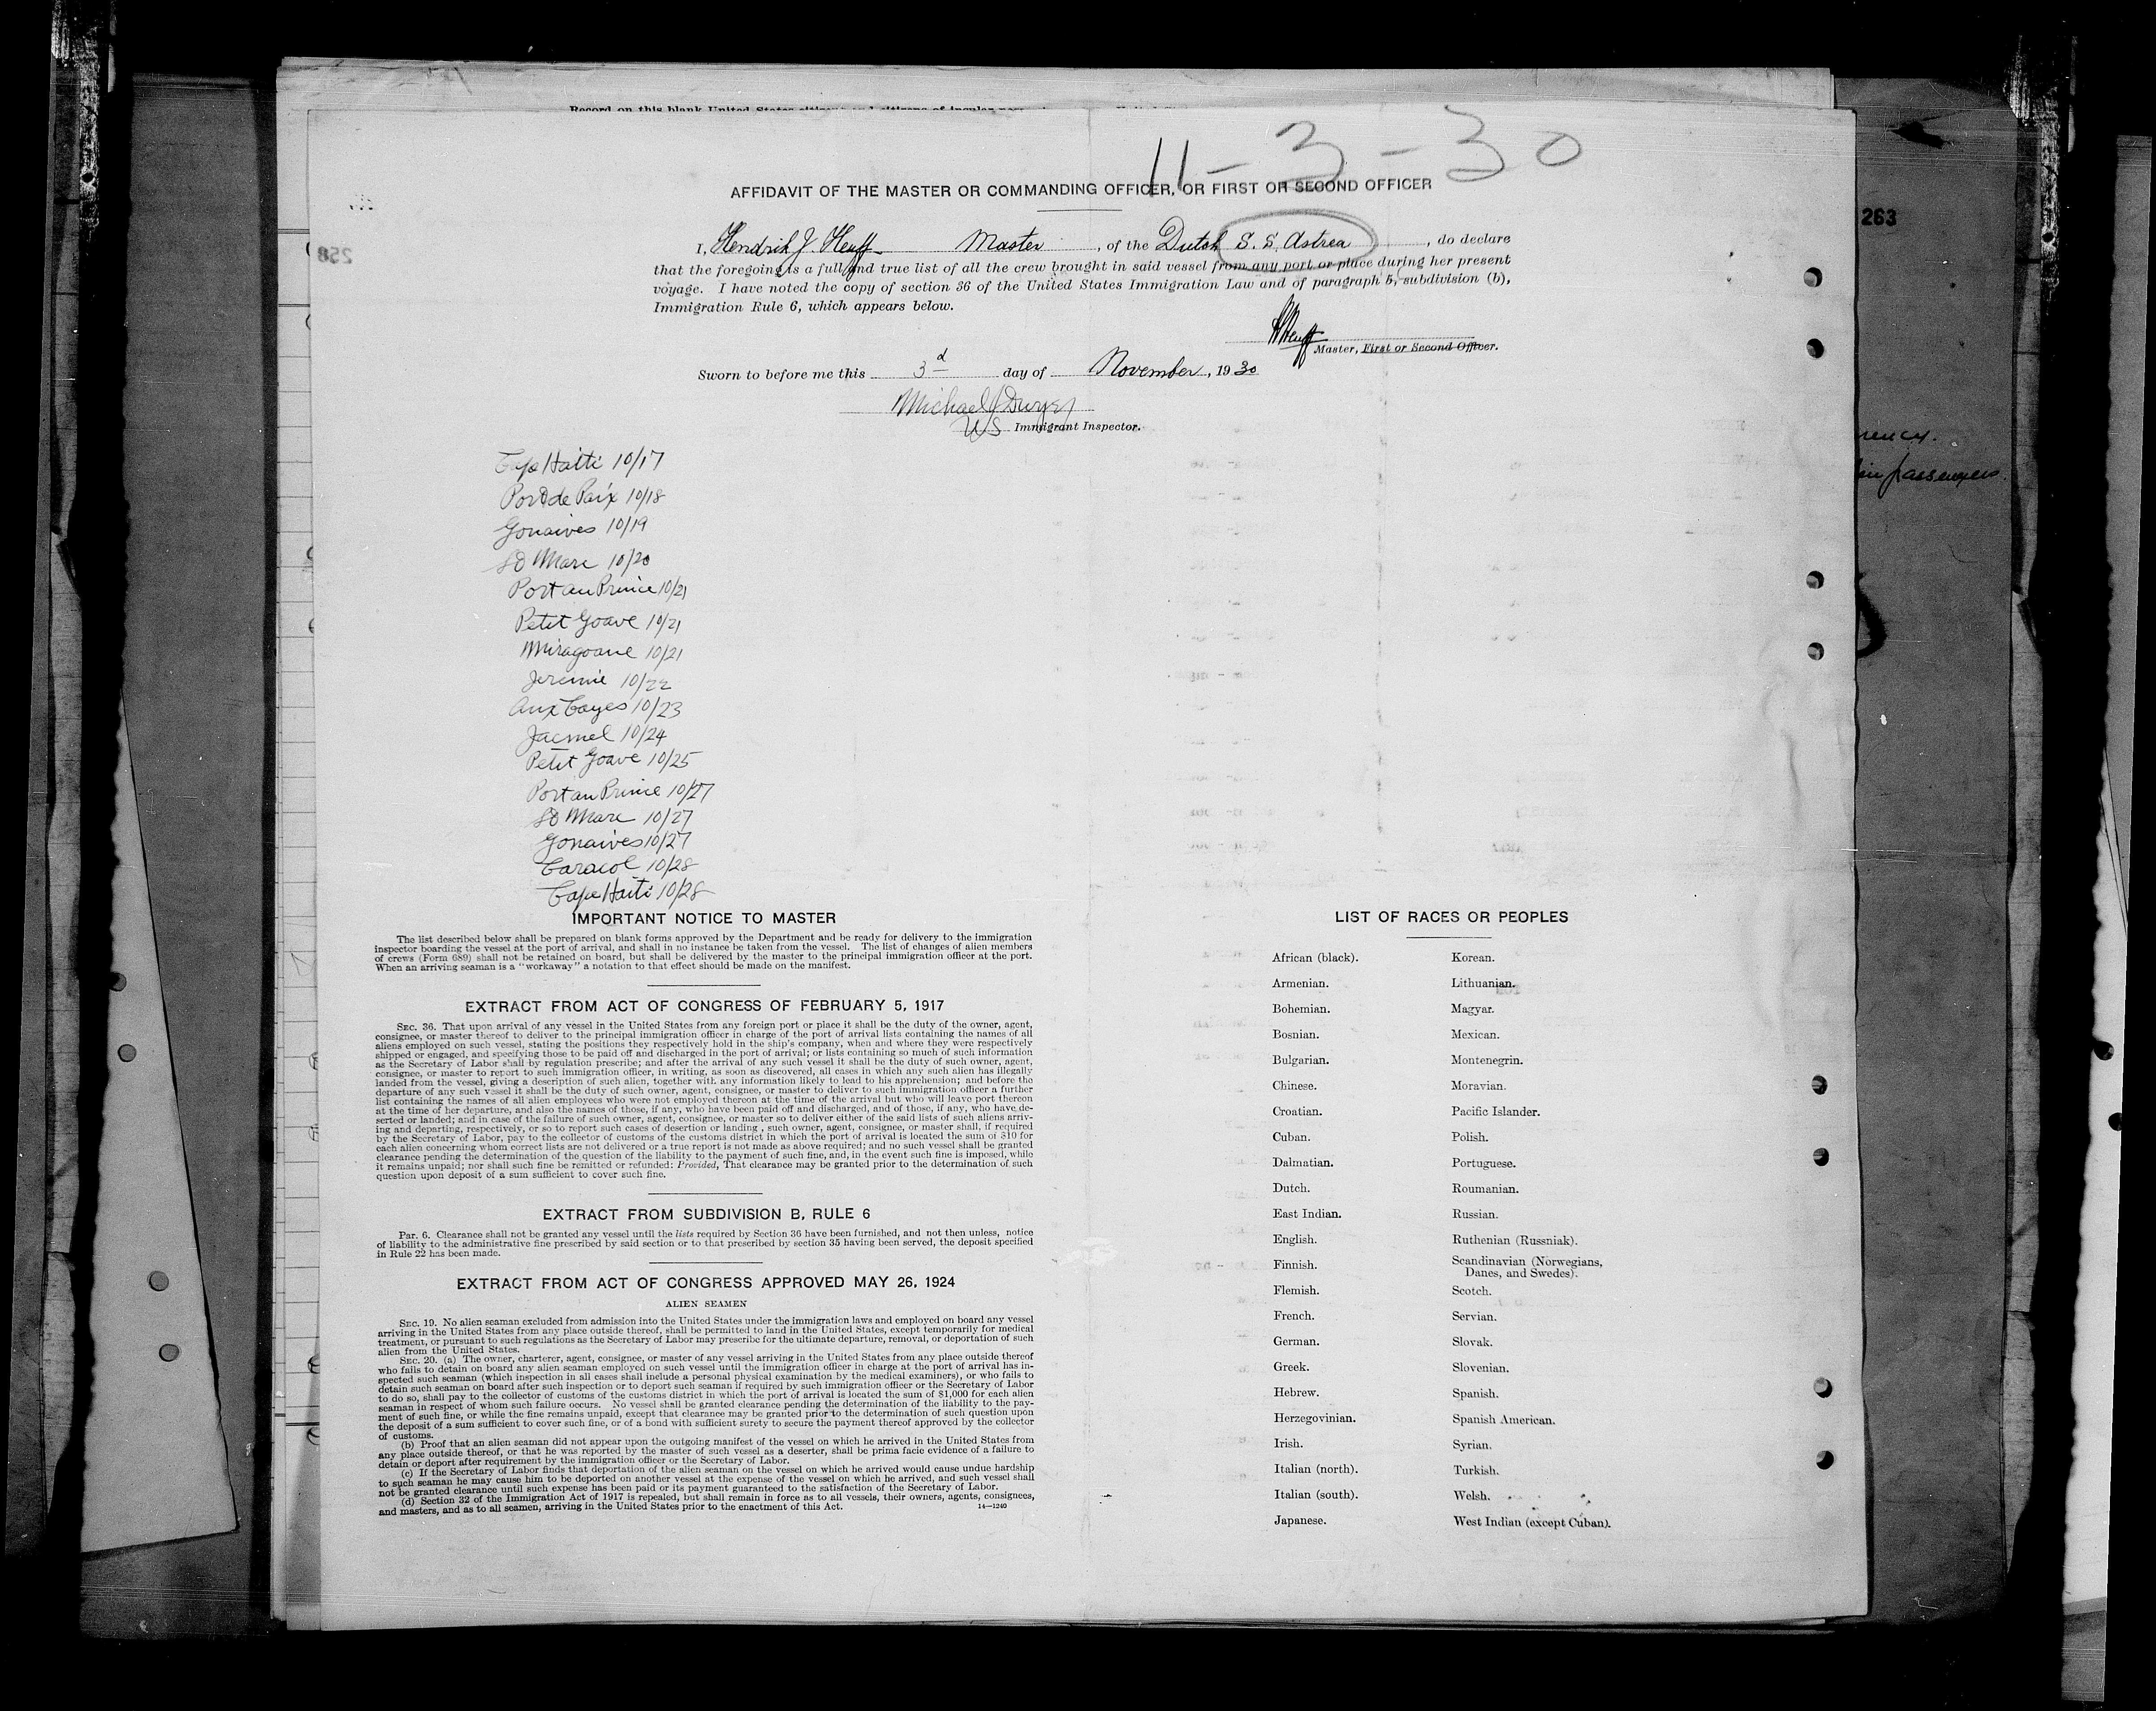 Record on this blank United States citizens and citizens of insular
11-3-30
AFFIDAVIT OF THE MASTER OR COMMANDING OFFICER, OR FIRST OR SECOND OFFICER
263
258
I, Hendrik J. Heuff Master, of the Dutch S. S. Astrea, do declare
that the foregoing is a full and true list of all the crew brought in said vessel from any port or place during her present
voyage. I have noted the copy of section 36 of the United States Immigration Law and of paragraph 5, subdivision (b),
Immigration Rule 6, which appears below.
HHeuff
Master, First or Second Officer.
Sworn to before me this 3d day of November, 1930
Michael J Dwyer
US Immigrant Inspector.
passengers.
Cape Haiti 10/17
Port de Paix 10/18
Gonaives 10/19
St Marc 10/20
Port au Prince 10/21
Petit Goave 10/21
Miragoane 10/21
Jeremie 10/22
Aux Cayes 10/23
Jacmel 10/24
Petit Goave 10/25
Port au Prince 10/27
St Marc 10/27
Gonaives 10/27
Caracol 10/28
Cape Haiti 10/28
IMPORTANT NOTICE TO MASTER
The list described below shall be prepared on blank forms approved by the Department and be ready for delivery to the immigration
inspector boarding the vessel at the port of arrival, and shall in no instance be taken from the vessel. The list of changes of alien members
of crews (Form 689) shall not be retained on board, but shall be delivered by the master to the principal immigration officer at the port.
When an arriving seaman is a "workaway" a notation to that effect should be made on the manifest.
EXTRACT FROM ACT OF CONGRESS OF FEBRUARY 5, 1917
SEC. 36. That upon arrival of any vessel in the United States from any foreign port or place it shall be the duty of the owner, agent,
consignee, or master thereof to deliver to the principal immigration officer in charge of the port of arrival lists containing the names of all
aliens employed on such vessel, stating the positions they respectively hold in the ship's company, when and where they were respectively
shipped or engaged, and specifying those to be paid off and discharged in the port of arrival; or lists containing so much of such information
as the Secretary of Labor shall by regulation prescribe; and after the arrival of any such vessel it shall be the duty of such owner, agent,
consignee, or master to report to such immigration officer, in writing, as soon as discovered, all cases in which any such alien has illegally
landed from the vessel, giving a description of such alien, together with any information likely to lead to his apprehension; and before the
departure of any such vessel it shall be the duty of such owner, agent, consignee, or master to deliver to such immigration officer a further
list containing the names of all alien employees who were not employed thereon at the time of the arrival but who will leave port thereon
at the time of her departure, and also the names of those, if any, who have been paid off and discharged, and of those, if any, who have de-
serted or landed; and in case of the failure of such owner, agent, consignee, or master so to deliver either of the said lists of such aliens arriv-
ing and departing, respectively, or so to report such cases of desertion or landing, such owner, agent, consignee, or master shall, if required
by the Secretary of Labor, pay to the collector of customs of the customs district in which the port of arrival is located the sum of $10 for
each alien concerning whom correct lists are not delivered or a true report is not made as above required; and no such vessel shall be granted
clearance pending the determination of the question of the liability to the payment of such fine, and, in the event such fine is imposed, while
it remains unpaid; nor shall such fine be remitted or refunded: Provided, That clearance may be granted prior to the determination of such
question upon deposit of a sum sufficient to cover such fine.
EXTRACT FROM SUBDIVISION B, RULE 6
Par. 6. Clearance shall not be granted any vessel until the lists required by Section 36 have been furnished, and not then unless, notice
of liability to the administrative fine prescribed by said section or to that prescribed by section 35 having been served, the deposit specified
in Rule 22 has been made.
EXTRACT FROM ACT OF CONGRESS APPROVED MAY 26, 1924
ALIEN SEAMEN
SEC. 19. No alien seaman excluded from admission into the United States under the immigration laws and employed on board any vessel
arriving in the United States from any place outside thereof, shall be permitted to land in the United States, except temporarily for medical
treatment, or pursuant to such regulations as the Secretary of Labor may prescribe for the ultimate departure, removal, or deportation of such
alien from the United States.
SEC. 20. (a) The owner, charterer, agent, consignee, or master of any vessel arriving in the United States from any place outside thereof
who fails to detain on board any alien seaman employed on such vessel until the immigration officer in charge at the port of arrival has in-
spected such seaman (which inspection in all cases shall include a personal physical examination by the medical examiners), or who fails to
detain such seaman on board after such inspection or to deport such seaman if required by such immigration officer or the Secretary of Labor
to do so, shall pay to the collector of customs of the customs district in which the port of arrival is located the sum of $1,000 for each alien
seaman in respect of whom such failure occurs. No vessel shall be granted clearance pending the determination of the liability to the pay-
ment of such fine, or while the fine remains unpaid, except that clearance may be granted prior to the determination of such question upon
the deposit of a sum sufficient to cover such fine, or of a bond with sufficient surety to secure the payment thereof approved by the collector
of customs.
(b) Proof that an alien seaman did not appear upon the outgoing manifest of the vessel on which he arrived in the United States from
any place outside thereof, or that he was reported by the master of such vessel as a deserter, shall be prima facie evidence of a failure to
detain or deport after requirement by the immigration officer or the Secretary of Labor.
(c) If the Secretary of Labor finds that deportation of the alien seaman on the vessel on which he arrived would cause undue hardship
to such seaman he may cause him to be deported on another vessel at the expense of the vessel on which he arrived, and such vessel shall
not be granted clearance until such expense has been paid or its payment guaranteed to the satisfaction of the Secretary of Labor.
(d) Section 32 of the Immigration Act of 1917 is repealed, but shall remain in force as to all vessels, their owners, agents, consignees,
and masters, and as to all seamen, arriving in the United States prior to the enactment of this Act. 14—1240
LIST OF RACES OR PEOPLES
African (black).
Armenian.
Bohemian.
Bosnian.
Bulgarian.
Chinese.
Croatian.
Cuban.
Dalmatian.
Dutch.
East Indian.
English.
Finnish.
Flemish.
French.
German.
Greek.
Hebrew.
Herzegovinian.
Irish.
Italian (north).
Italian (south).
Japanese.
Korean.
Lithuanian.
Magyar.
Mexican.
Montenegrin.
Moravian.
Pacific Islander.
Polish.
Portuguese.
Roumanian.
Russian.
Ruthenian (Russniak).
Scandinavian (Norwegians,
Danes, and Swedes).
Scotch.
Servian.
Slovak.
Slovenian.
Spanish.
Spanish American.
Syrian.
Turkish.
Welsh.
West Indian (except Cuban).